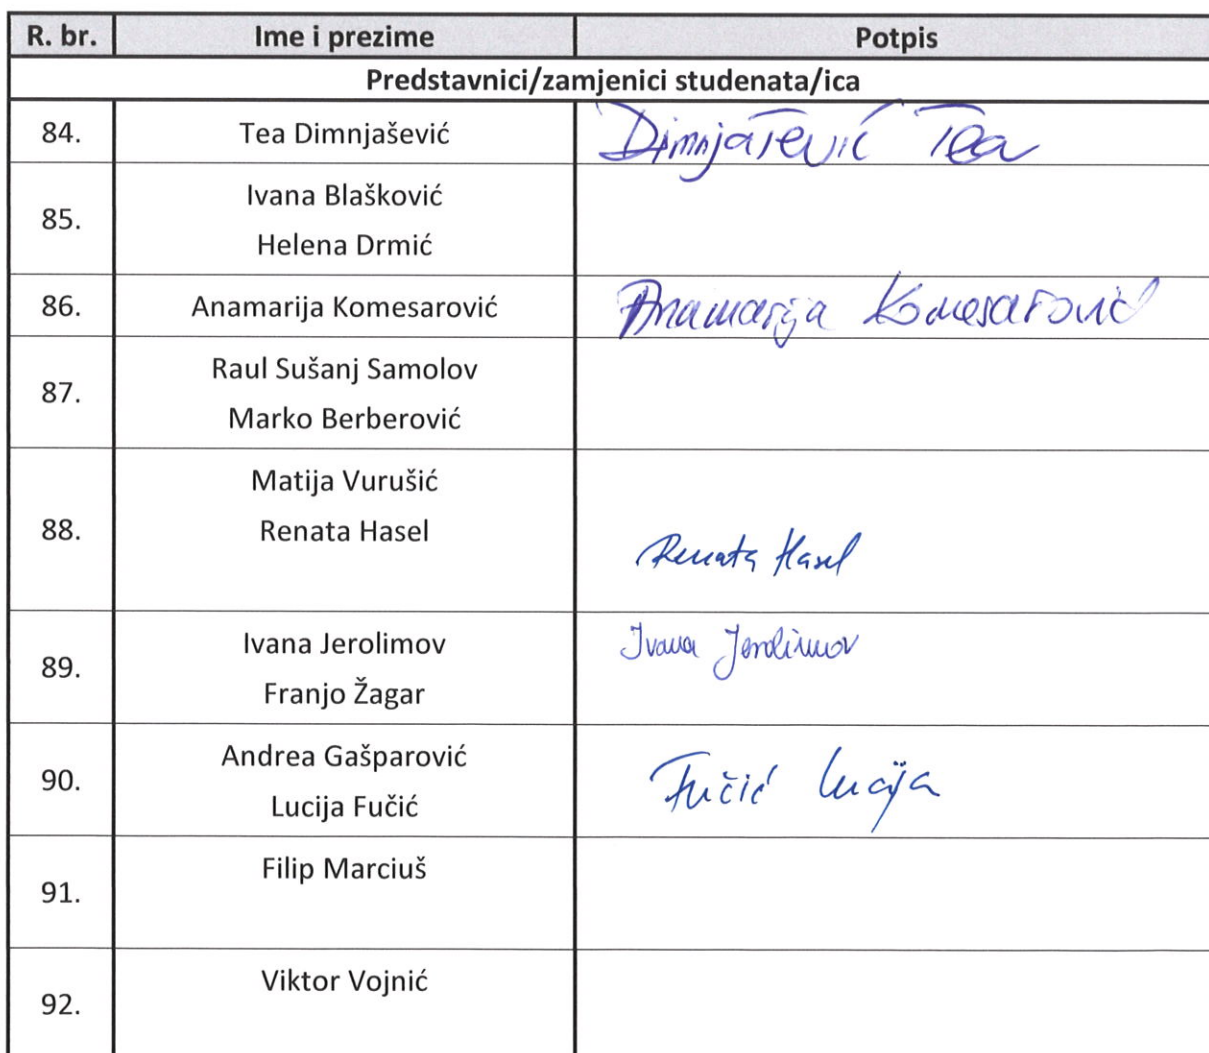 R. br. Ime i prezime Potpis
Predstavnici/zamjenici studenata/ica
84. Tea Dimnjašević Dimnjašević Tea
Ivana Blašković
85.
Helena Drmić
86. Anamarija Komesarović Anamarija Komesarović
Raul Sušanj Samolov
87.
Marko Berberović
Matija Vurušić
88. Renata Hasel Renata Hasel
Ivana Jerolimov Ivana Jerolimov
89.
Franjo Žagar
Andrea Gašparović
90. Fučić Lucija
Lucija Fučić
Filip Marciuš
91.
Viktor Vojnić
92.